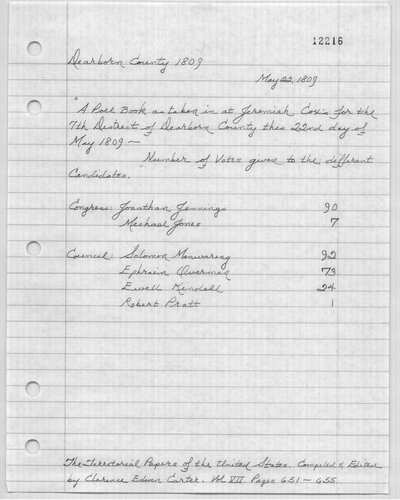 12216
Dearborn County 1809
May 22, 1809
"A Poll Book as taken in at Jeremiah Cox's for the
7th Destrest of Dearborn County this 22nd day of
May 1809 —
Number of Votes given to the different
Candidates.
Congress: Jonathan Jennings 90
Michael Jones 7
Council: Solomon Manwaring 92
Ephraim Overman 73
Ewell Kendell 24
Robert Pratt 1
The Territorial Papers of the United States. Compiled & Edited
by Clarence Edwin Carter. Vol VII Pages 651 — 655.